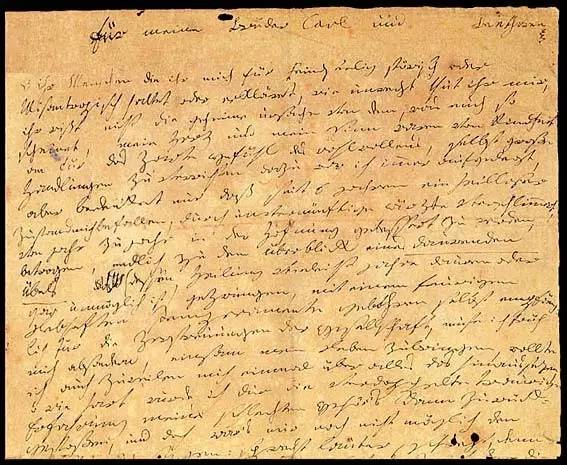 für meine Brüder Carl und Beethowen
O ihr Menschen die ihr mich für Feindseelig störisch oder
Misantropisch haltet oder erkläret, wie unrecht thut ihr mir,
ihr wißt nicht die geheime urßache von dem, was euch so
scheinet, mein Herz und mein Sinn waren von Kindheit
an für das Zarte gefühl des wohlwollens, selbst große
Handlungen zu verrichten dazu war ich immer aufgelegt,
aber bedenket nur daß seit 6 jahren ein heilloser
Zustand mich befallen, durch unvernünftige ärzte verschlimmert,
von jahr zu jahr in der Hofnung gebessert zu werden,
betrogen, endlich zu dem überblick eines daurenden
Übels dessen Heilung vieleicht jahre dauren oder
gar unmöglich ist gezwungen, mit einem feurigen
Lebhaften Temperamente gebohren selbst empfäng-
lich für die Zerstreuungen der Gesellschaft, muste ich früh
mich absondern, einsam mein Leben zubringen, wollte
ich auch zuweilen mich einmal über alles das hinaussezen,
o wie hart wurde ich dur die verdoppelte traurige
Erfahrung meines schlechten Gehör's dann zurück-
gestoßen, und doch war's mir noch nicht möglich den
sagen: sprecht lauter, schreyt, denn